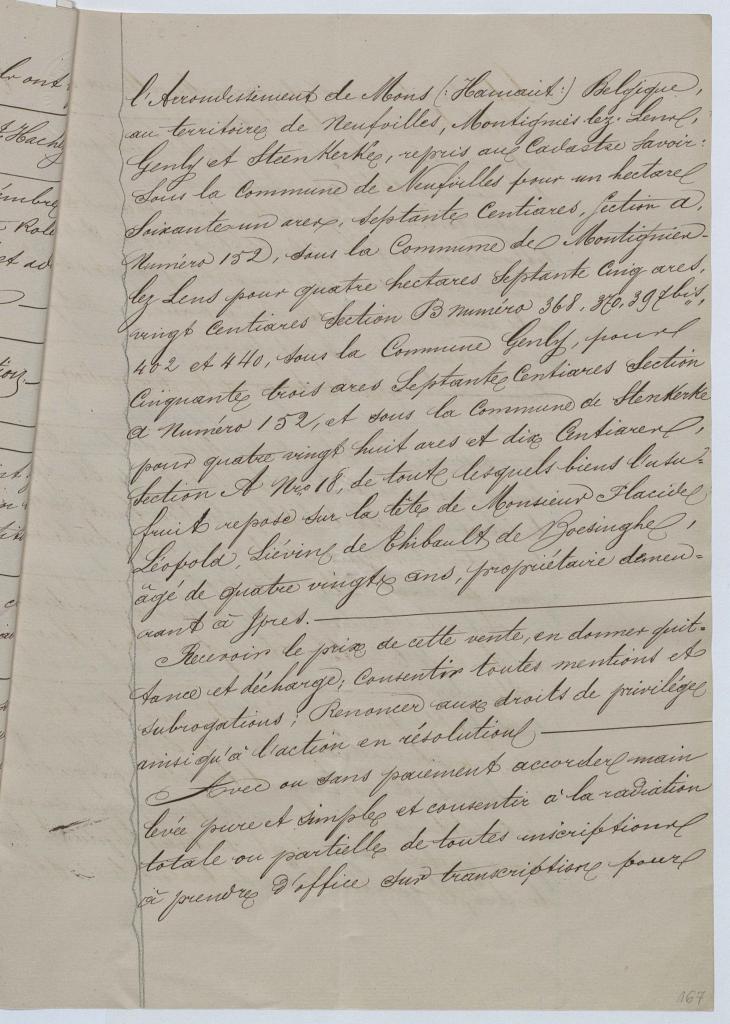 l'Arrondissement de Mons (:Hainaut:) Belgique,
au territoire de Neufvilles, Montignies lez-Lens,
Genly et Steenkerke, repris au Cadastre Savoir:
Sous la Commune de Neufvilles pour un hectare
Soixante un ares, septante Centiares, Section A,
Numéro 152, sous la Commune de Montignies-
lez Lens pour quatre hectares Septante Cinq ares,
vingt Centiares Section B Numéro 368, 370, 397 bis,
402 et 440, sous la Commune Genly, pour
Cinquante trois ares Septante Centiares Section
A Numéro 152, et sous la Commune de Stenkerke
pour quatre vingt huit ares et dix Centiares,
Section A Nro 18, de tout lesquels biens l'usu-
fruit repose sur la tête de Monsieur Placide
Léopold, Liévin de Thibault de Boesinghe,
âgé de quatre vingt ans, propriétaire demeu-
rant à Ypres.
Recevoir le prix de cette vente, en donner quit-
tance et décharge; Consentir toutes mentions et
subrogations; Renoncer aux droits de privilége
ainsi qu'à l'action en résolution
Avec ou sans paiement accorder main
levée pure et simple et consentir à la radiation
totale ou partielle de toutes inscriptions
à prendre d'office sur transcription pour
167